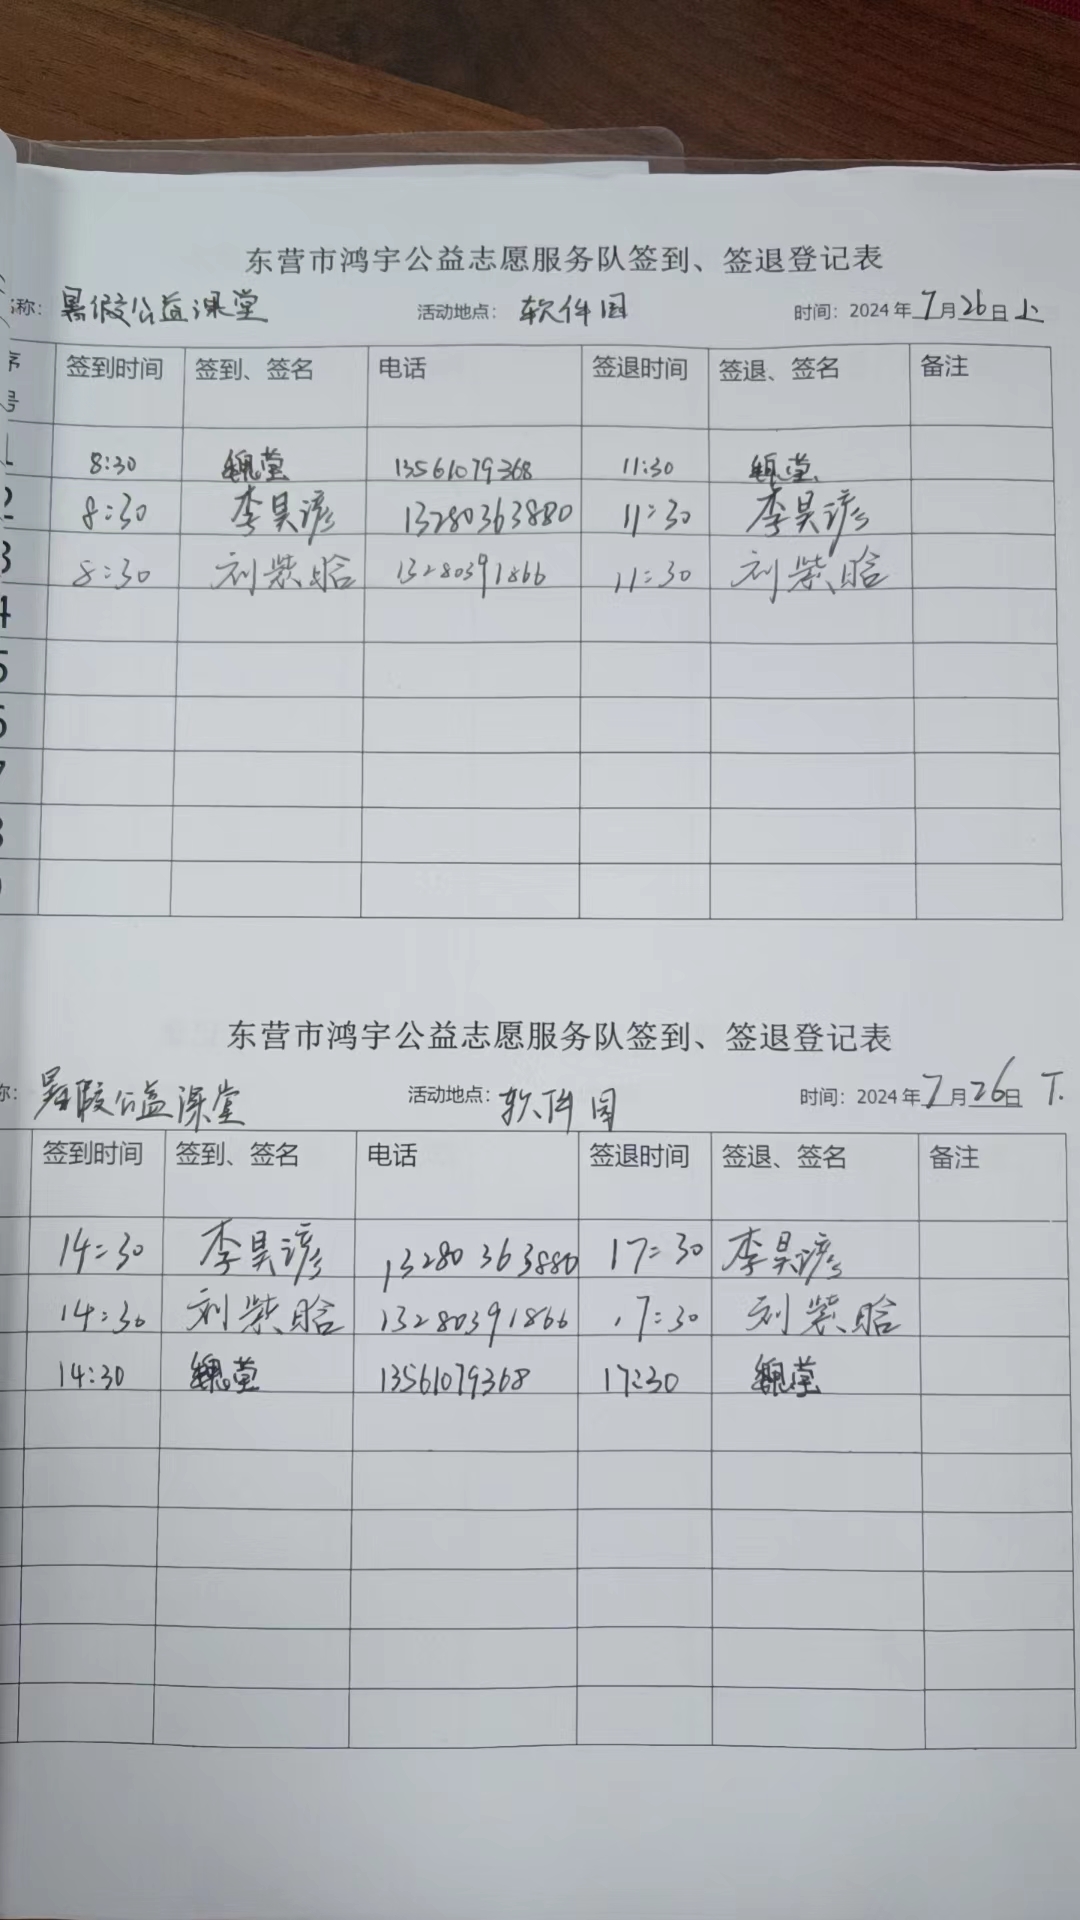 东营市鸿宇公益志愿服务队签到、签退登记表
称：暑假公益课堂 活动地点：软件园 时间：2024年7月26日上
序号 签到时间 签到、签名 电话 签退时间 签退、签名 备注
1 8:30 魏莹 13561079368 11:30 魏莹
2 8:30 李昊谚 13280363880 11:30 李昊谚
3 8:30 刘紫晗 13280391866 11:30 刘紫晗
4
5
6
7
8
9
东营市鸿宇公益志愿服务队签到、签退登记表
称：暑假公益课堂 活动地点：软件园 时间：2024年7月26日 下
签到时间 签到、签名 电话 签退时间 签退、签名 备注
14:30 李昊谚 13280363880 17:30 李昊谚
14:30 刘紫晗 13280391866 17:30 刘紫晗
14:30 魏莹 13561079368 17:30 魏莹